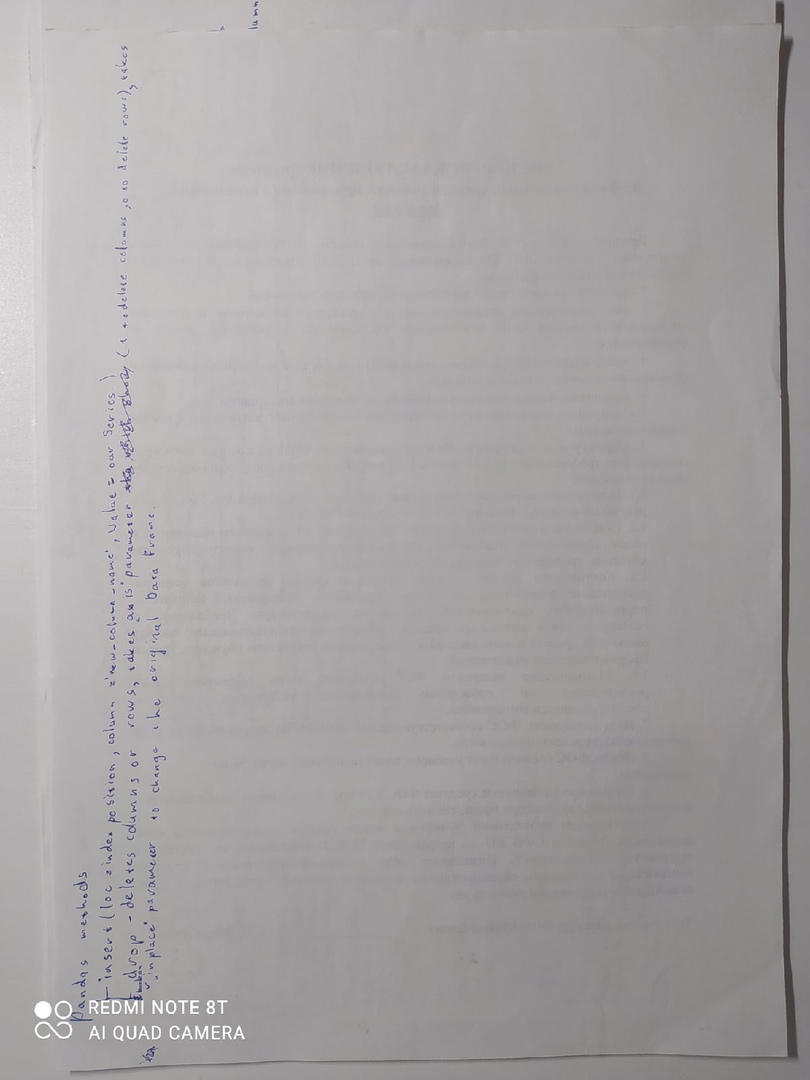 Pandas methods
insert (loc = index position, column = 'new-column-name', Value = our Series)
drop - deletes columns or rows, takes 'axis' parameter (1 to delete columns, 0 to delete rows), takes
'inplace' parameter to change the original Data Frame.
lumn
REDMI NOTE 8T
AI QUAD CAMERA